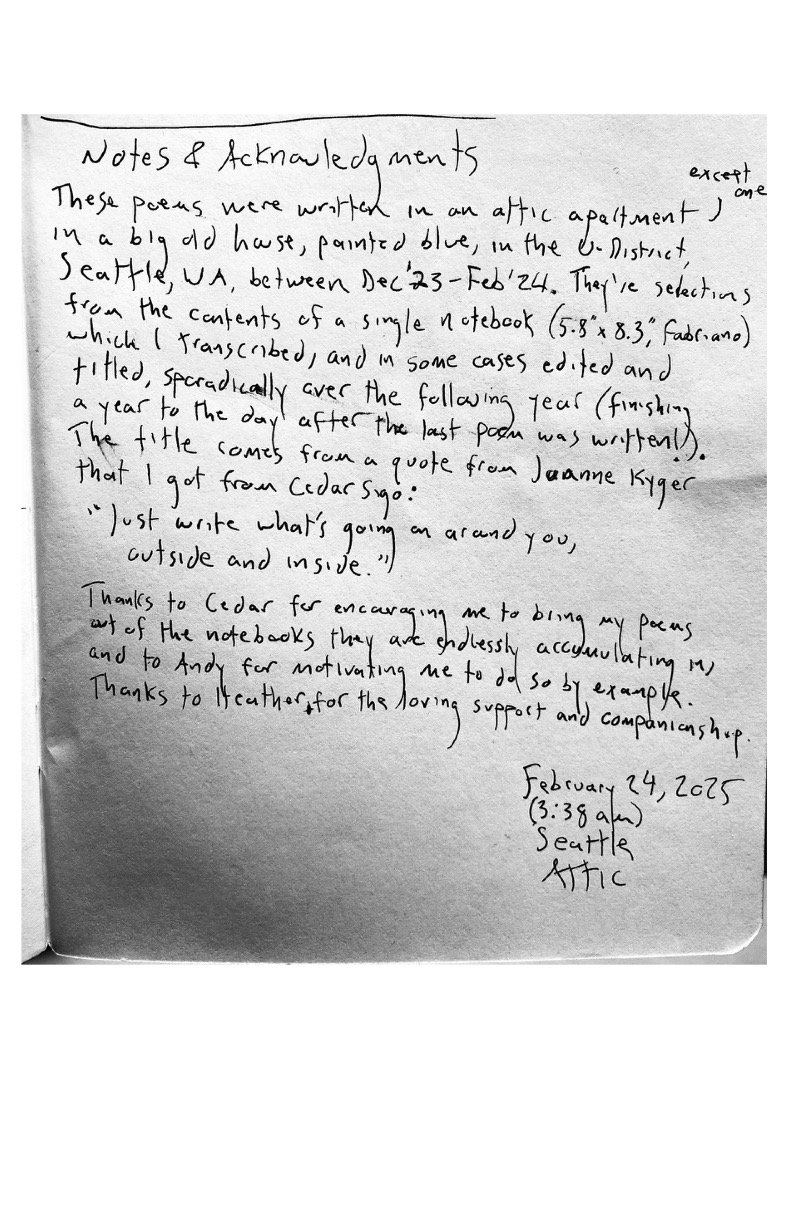 Notes & Acknowledgments
except
one
These poems were written in an attic apartment,
in a big old house, painted blue, in the U-District,
Seattle, WA, between Dec '23 - Feb '24. They're selections
from the contents of a single notebook (5.8" x 8.3", Fabriano)
which I transcribed, and in some cases edited and
titled, sporadically over the following year (finishing
a year to the day after the last poem was written!).
The title comes from a quote from Joanne Kyger
that I got from Cedar Sigo:
"Just write what's going on around you,
outside and inside."
Thanks to Cedar for encouraging me to bring my poems
out of the notebooks they are endlessly accumulating in,
and to Andy for motivating me to do so by example.
Thanks to Heather, for the loving support and companionship.
February 24, 2025
(3:38 am)
Seattle
Attic